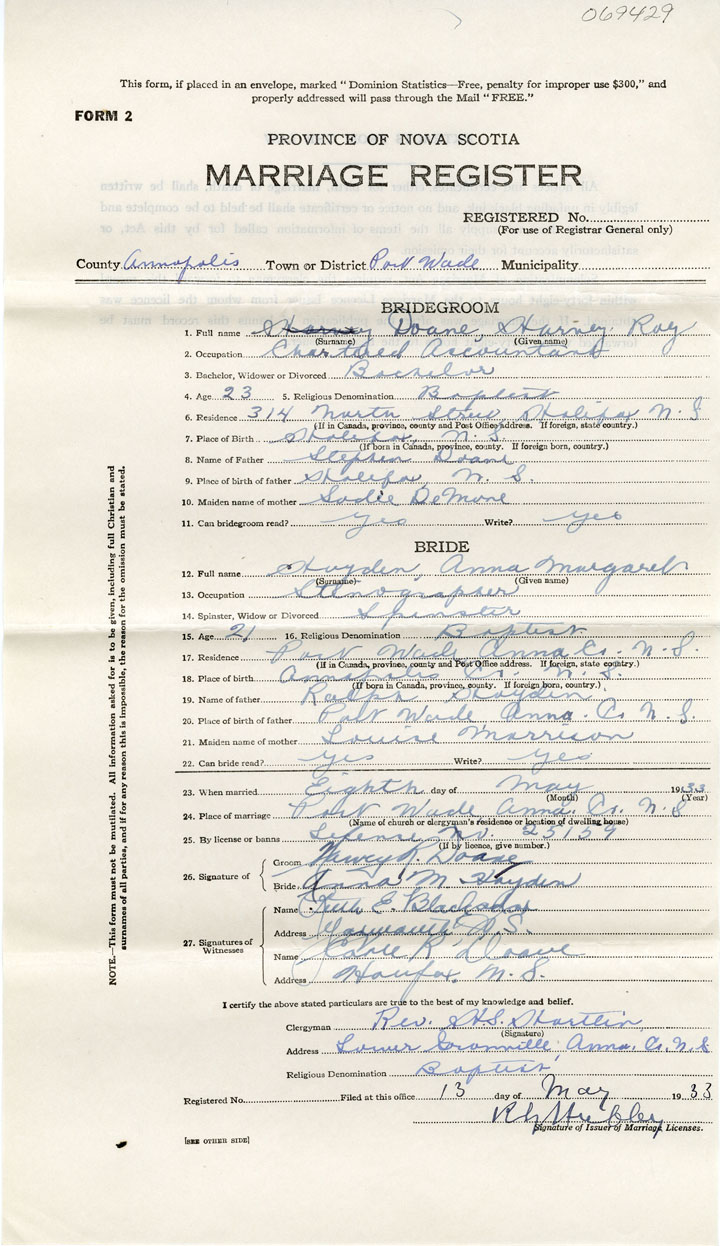 069429
This form, if placed in an envelope, marked "Dominion Statistics—Free, penalty for improper use $300," and
properly addressed will pass through the Mail "FREE."
FORM 2
PROVINCE OF NOVA SCOTIA
MARRIAGE REGISTER
REGISTERED No.
(For use of Registrar General only)
County Annapolis Town or District Port Wade Municipality
BRIDEGROOM
1. Full name Doane, Harvey Roy
(Surname) (Given name)
2. Occupation Chartered Accountant
3. Bachelor, Widower or Divorced Bachelor
4. Age 23 5. Religious Denomination Baptist
6. Residence 314 North Street Halifax N. S
(If in Canada, province, county and Post Office address. If foreign, state country.)
7. Place of Birth Halifax, N. S.
(If born in Canada, province, county. If foreign born, country.)
8. Name of Father Stephen Doane
9. Place of birth of father Halifax, N. S.
10. Maiden name of mother Sadie DeMone
11. Can bridegroom read? yes Write? yes
BRIDE
12. Full name Hayden, Anna Margaret
(Surname) (Given name)
13. Occupation Stenographer
14. Spinster, Widow or Divorced Spinster
15. Age 21 16. Religious Denomination Baptist
17. Residence Port Wade Anna Co. N. S.
(If in Canada, province, county and Post Office address. If foreign, state country.)
18. Place of birth Annapolis Co. N. S.
(If born in Canada, province, county. If foreign born, country.)
19. Name of father Ralph Hayden
20. Place of birth of father Port Wade Anna. Co N. S.
21. Maiden name of mother Louise Morrison
22. Can bride read? yes Write? yes
23. When married Eighth day of May 1933
(Month) (Year)
24. Place of marriage Port Wade Anna, Co. N. S
(Name of church or clergyman's residence or location of dwelling house)
25. By license or banns No. 25159
(If by licence, give number.)
26. Signature of
Groom Harvey R. Doane
Bride Anna M Hayden
27. Signatures of Witnesses
Name Ruth E.
Address N.S.
Name R Doane
Address Halifax, N. S.
I certify the above stated particulars are true to the best of my knowledge and belief.
Clergyman Rev. H.S. Hartlin
(Signature)
Address Lower Granville, Anna. Co. N. S
Religious Denomination Baptist
Registered No. Filed at this office 13 day of May 1933
Signature of Issuer of Marriage Licenses.
[SEE OTHER SIDE]
NOTE.—This form must not be mutilated. All information asked for is to be given, including full Christian and
surnames of all parties, and if for any reason this is impossible, the reason for the omission must be stated.